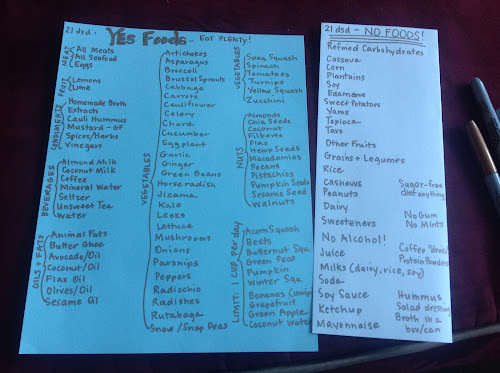 21 dsd: YES Foods - EAT PLENTY!
MEAT
All Meats
All Seafood
Eggs
FRUIT
Lemons
Lime
CONDIMENTS
Homemade Broth
Extracts
Cauli Hummus
Mustard - GF
Spices/Herbs
Vinegars
BEVERAGES
Almond Milk
Coconut Milk
Coffee
Mineral Water
Seltzer
Unsweet Tea
Water
OILS + FATS
Animal Fats
Butter Ghee
Avocado/Oil
Coconut/Oil
Flax Oil
Olives/Oil
Sesame Oil
VEGETABLES
Artichokes
Asparagus
Broccoli
Brussel Sprouts
Cabbage
Carrots
Cauliflower
Celery
Chard
Cucumber
Eggplant
Garlic
Ginger
Green Beans
Horseradish
Jicama
Kale
Leeks
Lettuce
Mushrooms
Onions
Parsnips
Peppers
Radicchio
Radishes
Rutabaga
Snow/Snap Peas
VEGETABLES
Spag Squash
Spinach
Tomatoes
Turnips
Yellow Squash
Zucchini
NUTS
Almonds
Chia Seeds
Coconut
Filberts
Flax
Hemp Seeds
Macadamias
Pecans
Pistachios
Pumpkin Seeds
Sesame Seed
Walnuts
LIMIT: 1 CUP per day
Acorn Squash
Beets
Butternut Squ.
Green Peas
Pumpkin
Winter Squ.
Bananas
Grapefruit
Green Apple
Coconut Water
21 dsd - NO FOODS!
Refined Carbohydrates
Cassava
Corn
Plantains
Soy
Edamame
Sweet Potatoes
Yams
Tapioca
Taro
Other Fruits
Grains + Legumes
Rice
Cashews
Peanuts
Sugar-free
diet anything
Dairy
Sweeteners
No Gum
No Mints
No Alcohol!
Juice
Coffee "drinks"
Protein Powders
Milks (dairy, rice, soy)
Soda
Soy Sauce
Hummus
Ketchup
Salad dressing
Mayonnaise
Broth in a
box/can